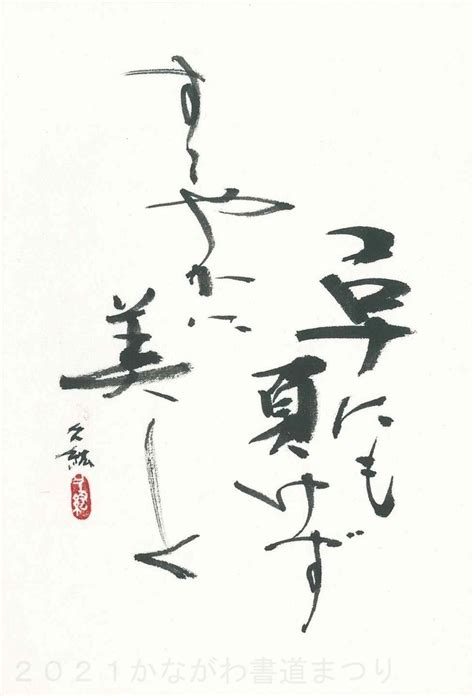 コロナにも負けず
すこやかに
美しく
２０２１かながわ書道まつり